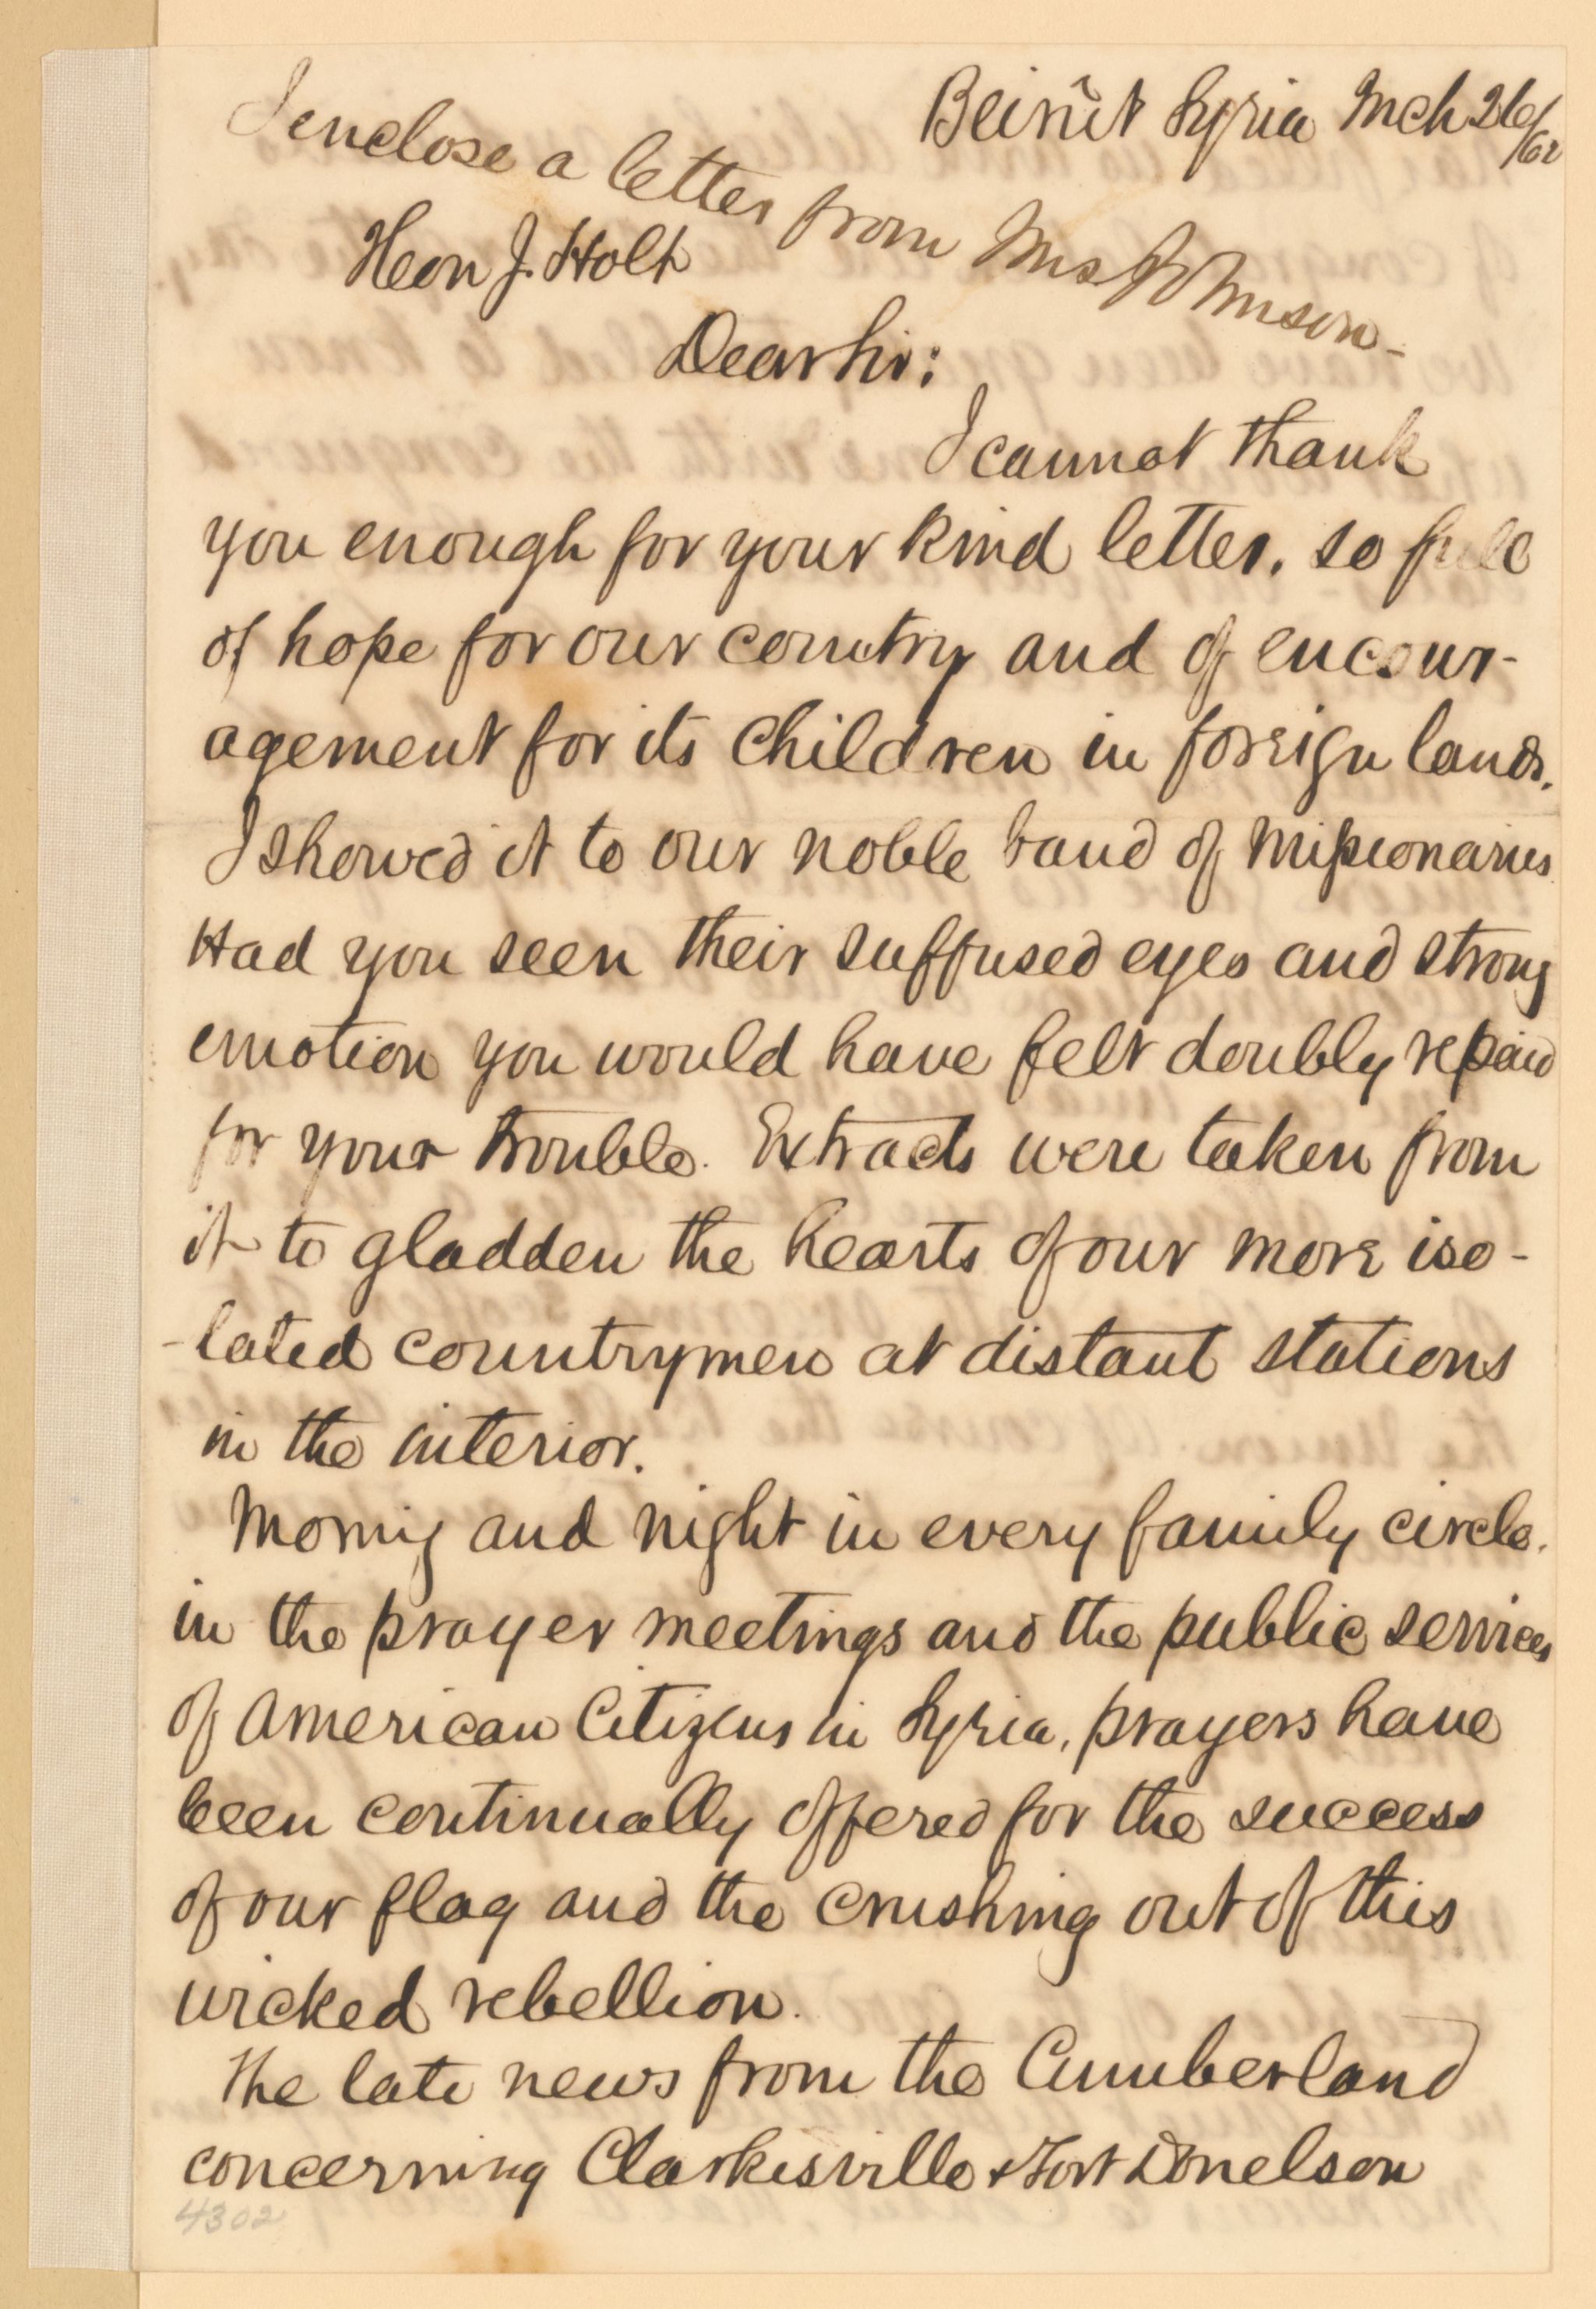 Beirût Syria Mch 26/62
I enclose a letter from Mrs Johnson-
Hon J. Holt
Dear Sir:
I cannot thank
you enough for your kind letter. so full
of hope for our country and of encour-
agement for its children in foreign lands.
I showed it to our noble band of missionaries
Had you seen their suffused eyes and strong
emotion you would have felt doubly repaid
for your trouble. Extracts were taken from
it to gladden the hearts of our more iso-
-lated countrymen at distant stations
in the interior.
Morning and night in every family circle.
in the prayer meetings and the public services
of American Citizens in Syria, prayers have
been continually offered for the success
of our flag and the crushing out of this
wicked rebellion.
The late news from the Cumberland
concerning Clarkesville & Fort Donelson
4302